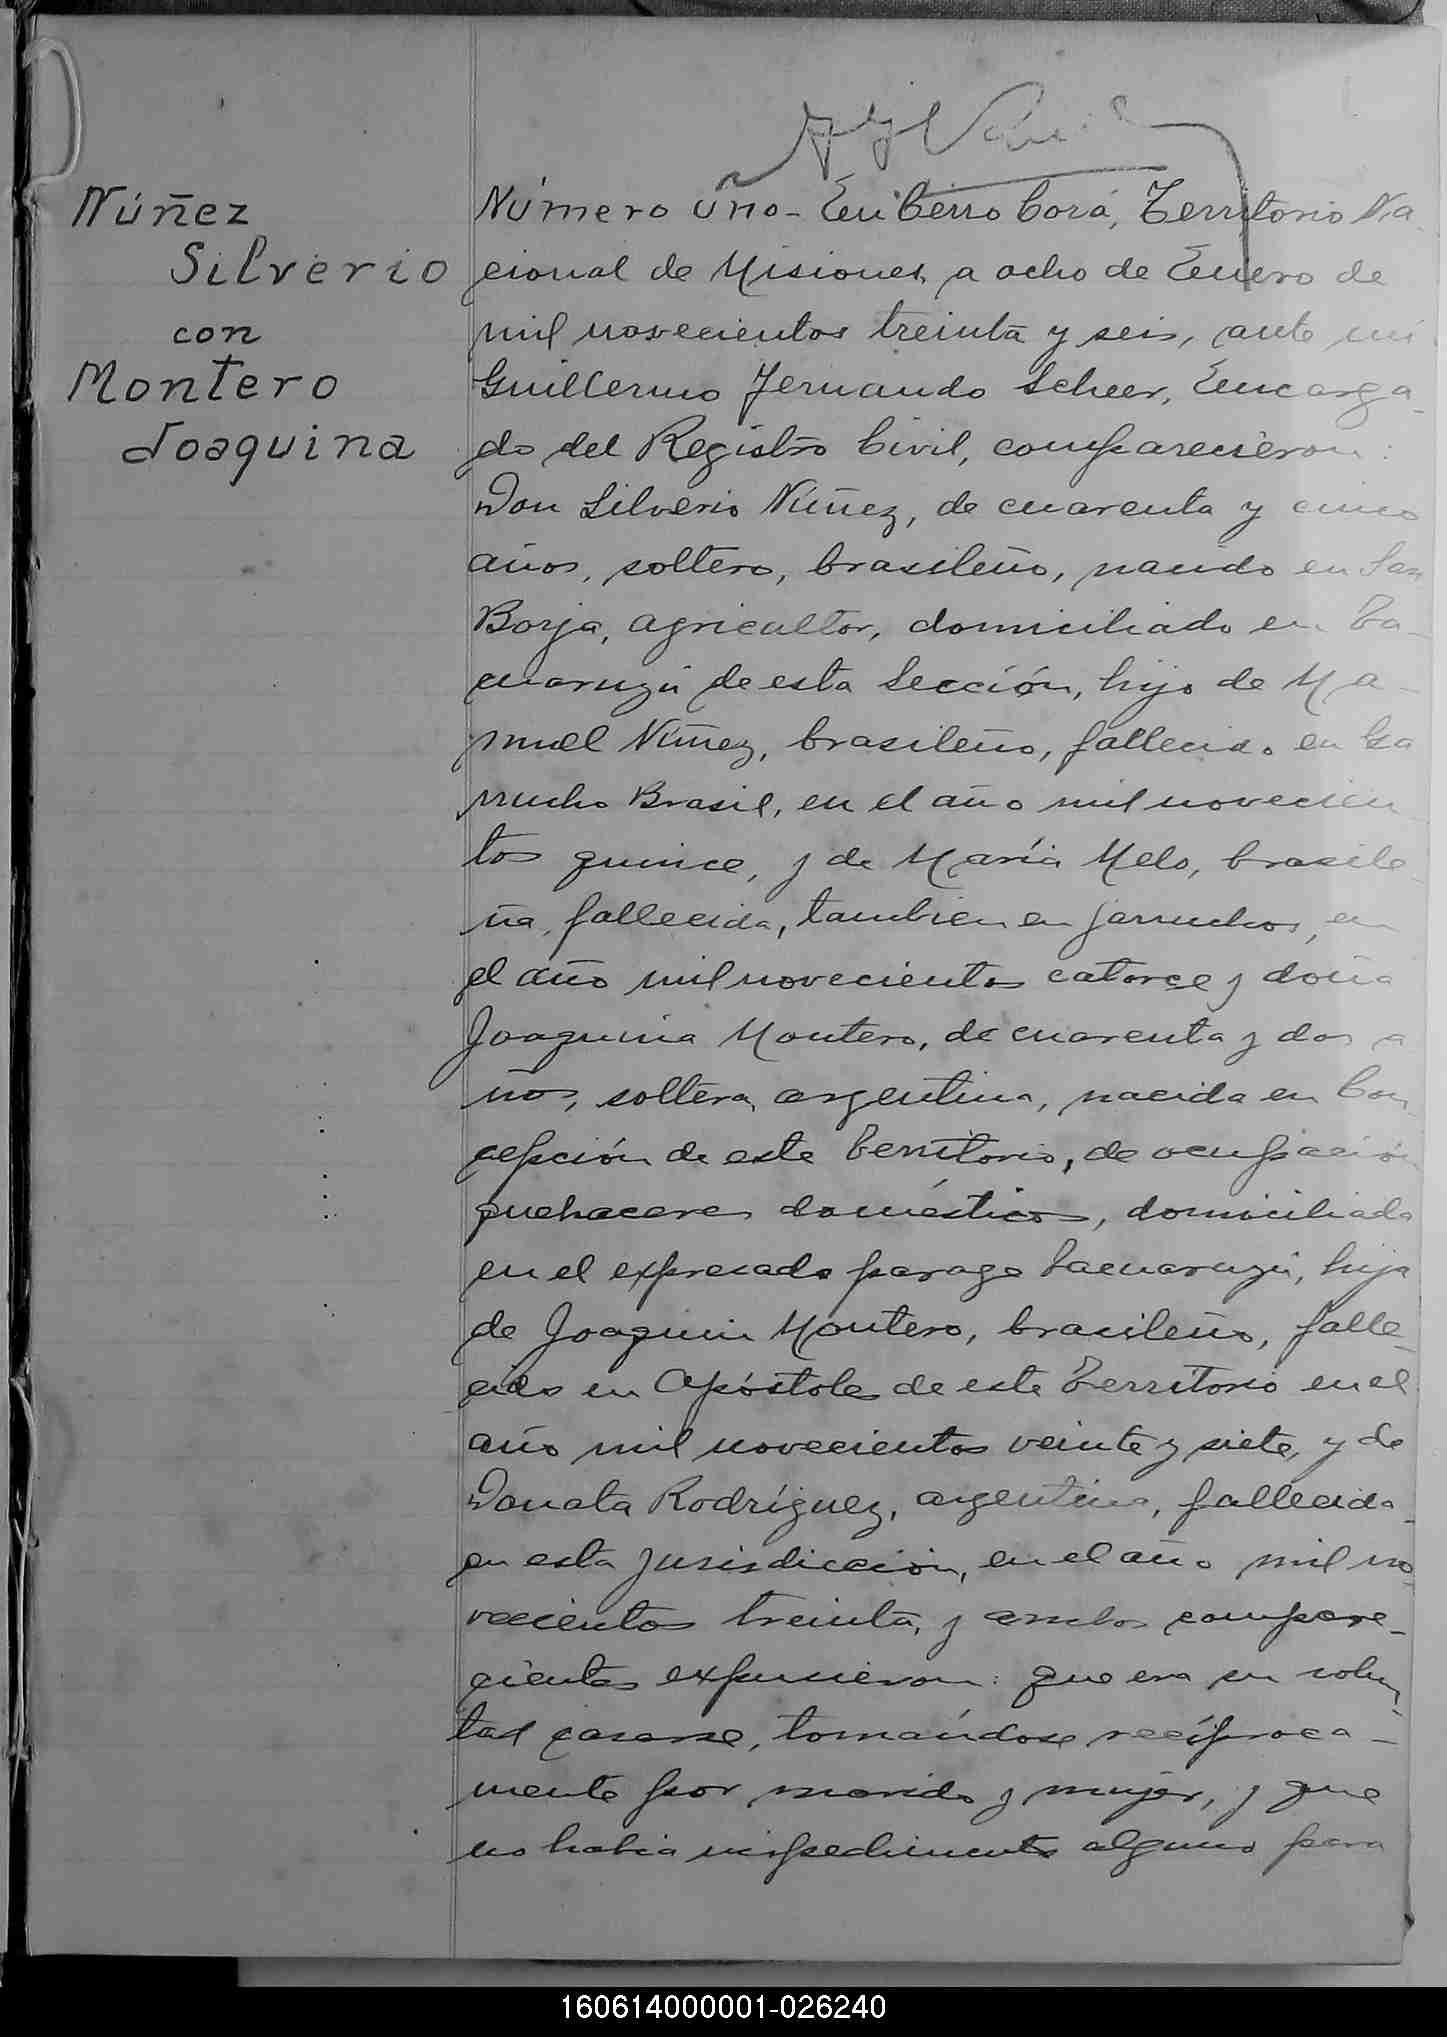 Núñez
Silverio
con
Montero
Joaquina
Número uno - En Cerro Corá, Territorio Na-
cional de Misiones, a ocho de Enero de
mil novecientos treinta y seis, ante mi
Guillermo Fernando Scheer, Encarga-
do del Registro Civil, comparecieron:
Don Silverio Núñez, de cuarenta y cinco
años, soltero, brasileño, nacido en San
Borja, agricultor, domiciliado en Ta-
cuaruzú de esta Sección, hijo de Ma-
nuel Núñez, brasileño, fallecido en Ga
rrucho Brasil, en el año mil novecien
tos quince, y de María Melo, brasile-
ña, fallecida, tambien en garruchos, en
el año mil novecientos catorce y doña
Joaquina Montero, de cuarenta y dos a
ños, soltera, argentina, nacida en Con-
cepción de este Territorio, de ocupación
quehaceres domésticos, domiciliada
en el expresado parage Tacuaruzú, hija
de Joaquin Montero, brasileño, falle-
cido en Apóstoles de este Territorio en el
año mil novecientos veinte y siete, y de
Donata Rodríguez, argentina, fallecida
en esta jurisdicción, en el año mil no-
vecientos treinta, y ambos compare-
cientes expusieron: que era su volun-
tad casarse, tomándose recíproca-
mente por marido y mujer, y que
no habia impedimento alguno para
160614000001-026240